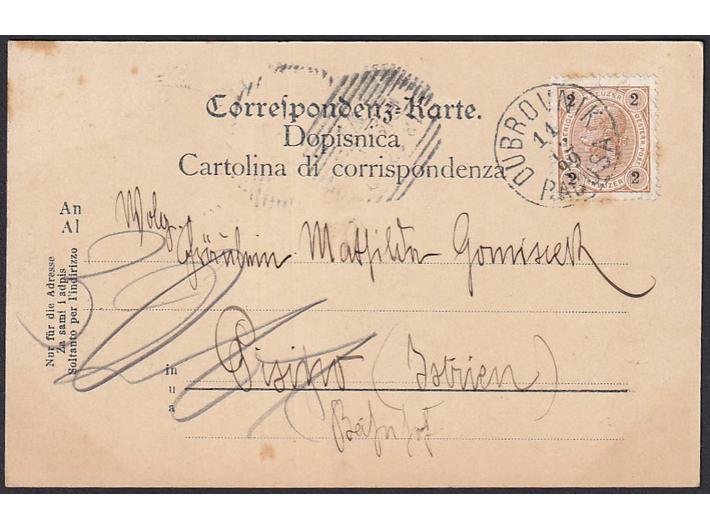 Correspondenz-Karte.
Dopisnica
Cartolina di corrispondenza
DUBROVNIK
11
99
RAGUSA
2 KREUZER 2
OESTERR. POST
2 KREUZER 2
An
Al
Wolg.
Fräulein Mathilde Gomiseck
Nur für die Adresse
Za samı i adpis
Soltanto per l'indirizzo
in
u
a
Pisino (Istrien)
Bahnhof